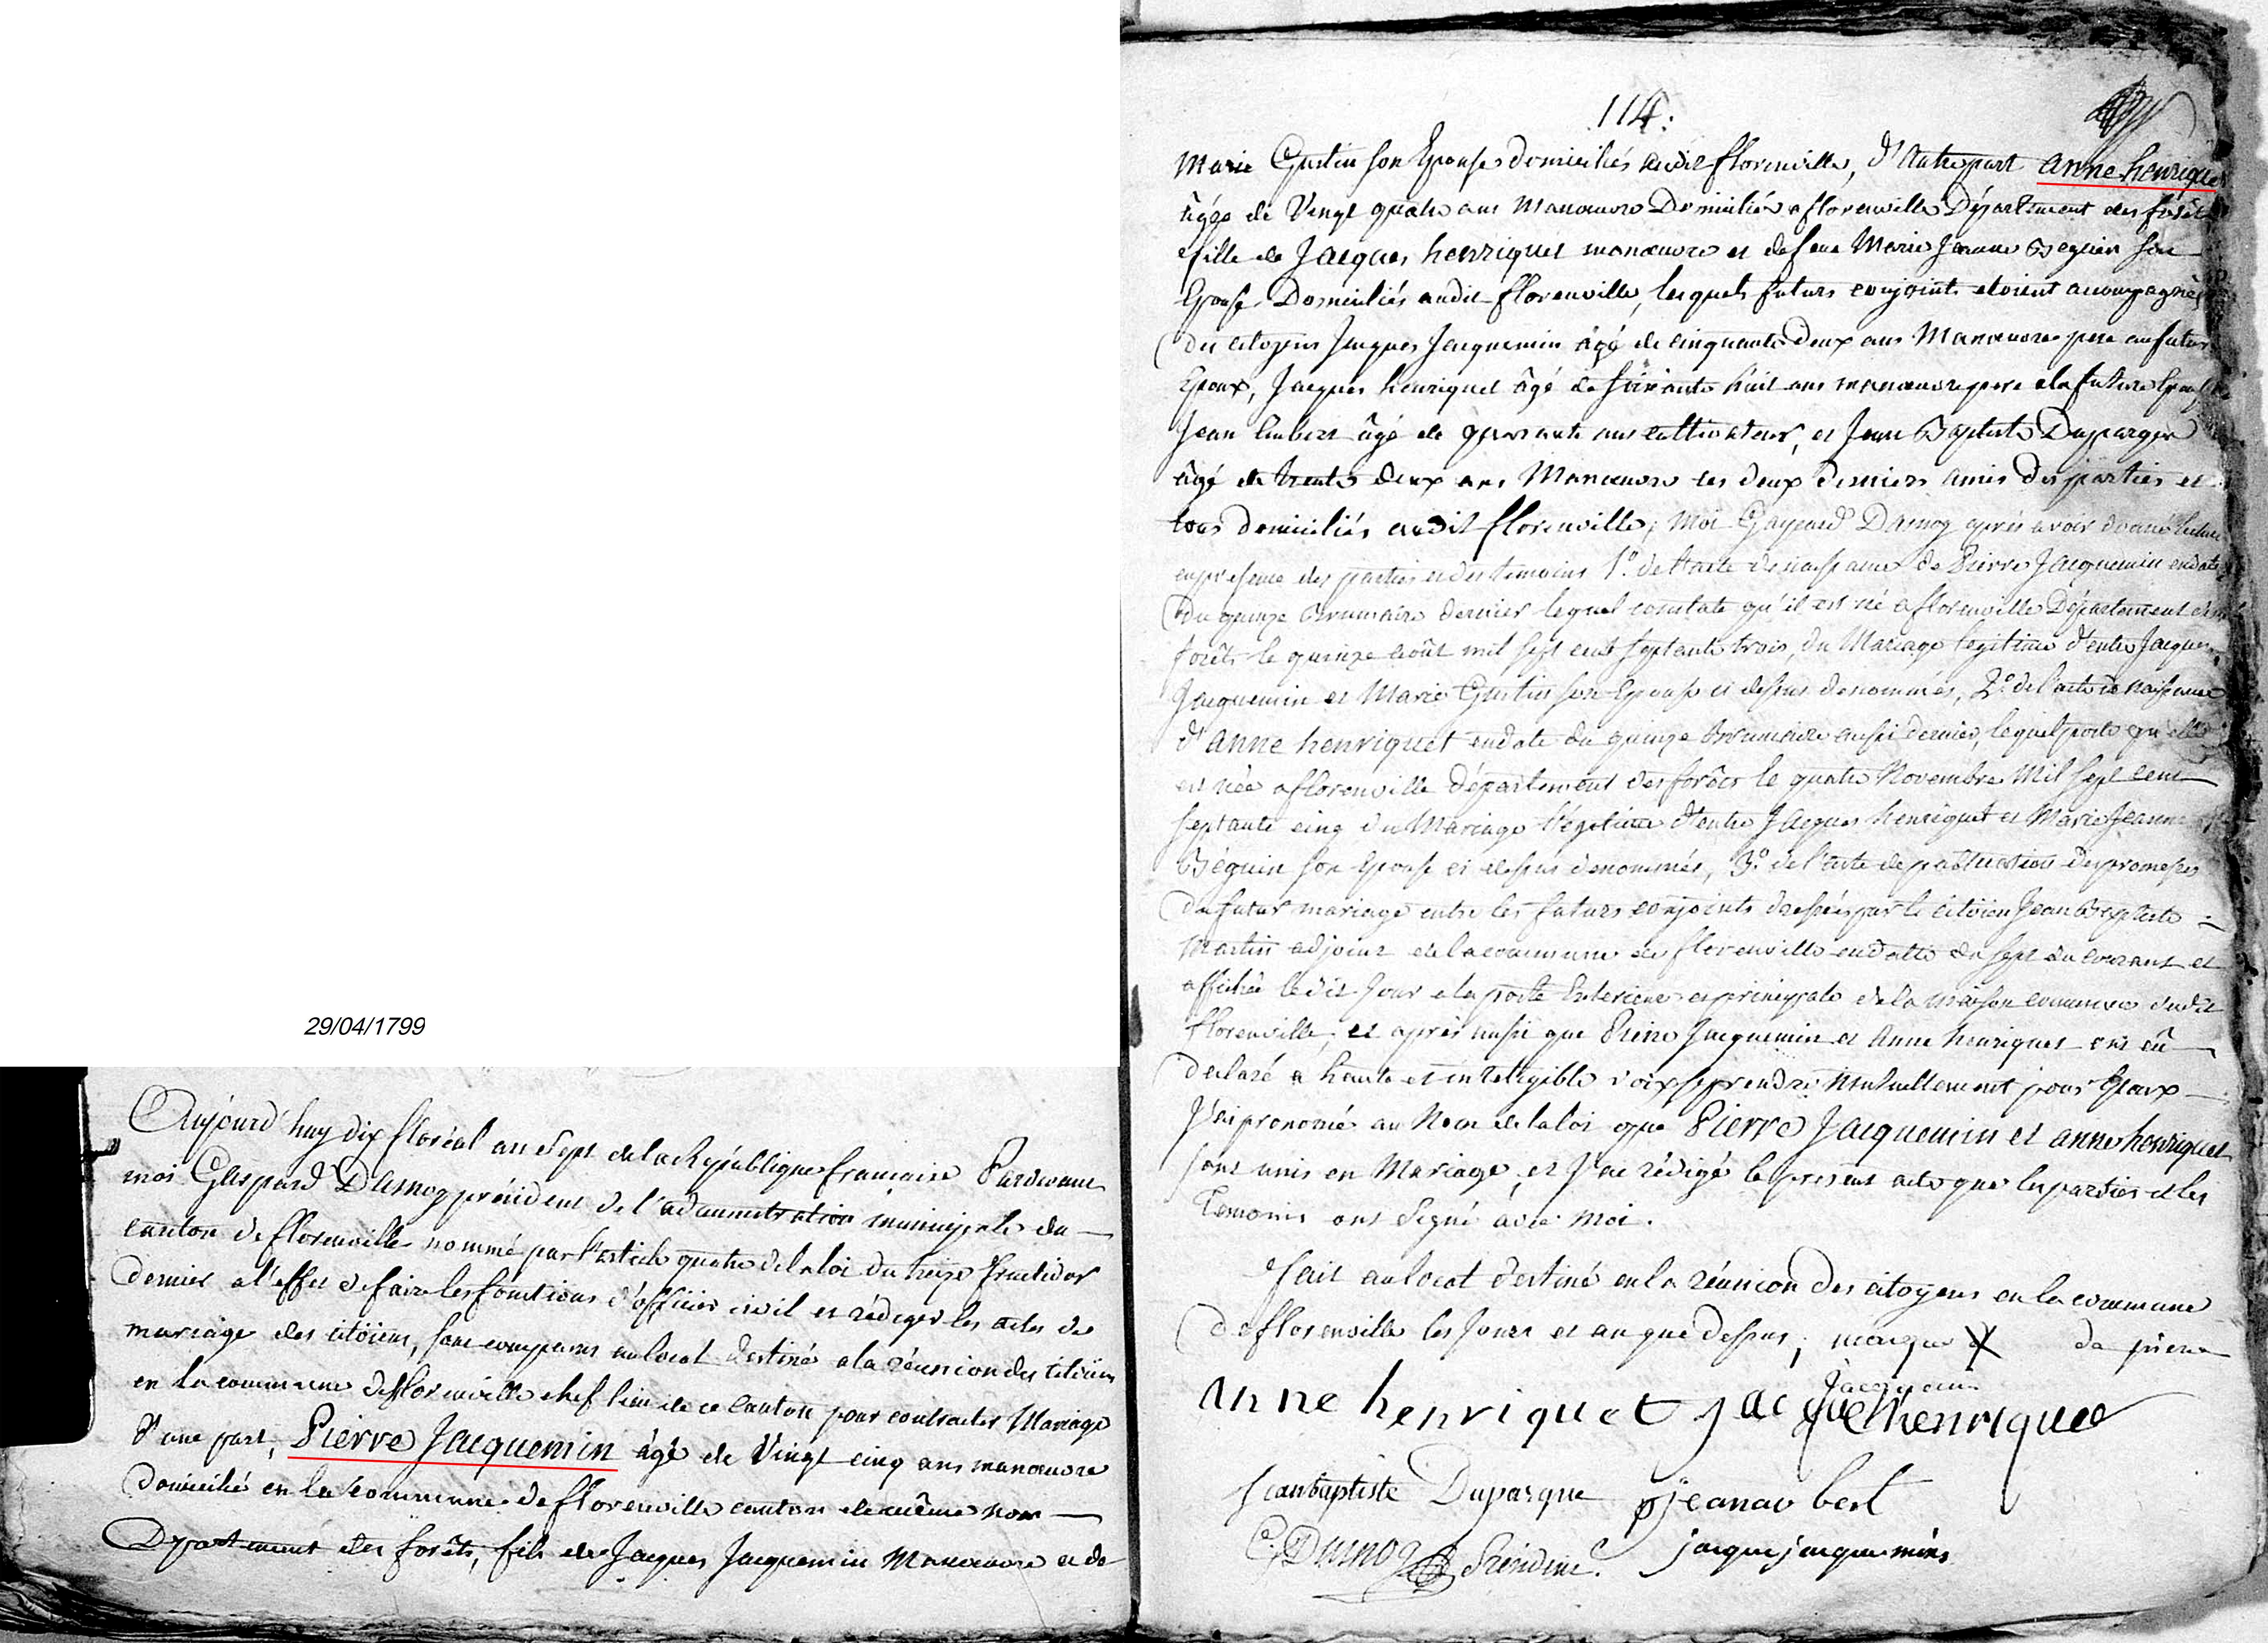 29/04/1799
Aujourd'huy dix floréal an sept de la République francaise Pardevant
moi Gaspard Damog président de l'administration municipale du
canton de florenville nommé par l'article quatre de la loi du treize fructidor
dernier a l'effet de faire les fonctions d'officier civil et rédiger les actes de
mariage des citöiens, sont comparus au local destiné a la réunion des citöiens
en la commune de florenville chef lieu de ce canton pour contracter Mariage
d'une part, Pierre Jacquemin âgé de Vingt cinq ans manœuvre
domicilié en la commune de florenville canton de même nom
Département des forêts, fils de Jacques Jacquemin Manœuvre et de
114.
Marie Gustin son Epouse domiciliés audit florenville, d'Autre part anne henriquet
âgée de Vingt quatre ans Manœuvre Domiciliée a florenville Département des forêts
fille de Jacques henriquet manœuvre et de feue Marie Jeanne Beguin son
Epouse Domiciliés audit florenville, lesquels futurs conjoints etoient accompagnés
des citoyens Jacques Jacquemin âgé de cinquante Deux ans Manœuvre pere au futur
Epoux, Jacques henriquet âgé de soixante huit ans manœuvre pere a la future Epouse
Jean âgé de quarante ans cultivateur, et Jean Baptiste Duparque
âgé de trente deux ans Manœuvre les deux derniers amis des parties et
tous domiciliés audit florenville, Moi Gaspard Damog après avoir donné lecture
en presence des parties et des temoins 1.o de l'acte de naissance de Pierre Jacquemin en date
du quinze Brumaire dernier lequel constate qu'il est né a florenville Département des
forêts le quinze août mil sept cent septante trois, du Mariage legitime d'entre Jacques
Jacquemin et Marie Gustin son Epouse ci dessus denommés, 2.o de l'acte de naissance
d'anne henriquet en date du quinze Brumaire aussi dernier, lequel porte qu'elle
est née a florenville département des forêts le quatre Novembre Mil sept cent
septante cinq du Mariage légitime d'entre Jacques henriquet et Marie Jeanne
Béguin son Epouse ci dessus denommés, 3.o de l'acte de publication des promesses
du futur mariage entre les futurs conjoints dressées par le citöien Jean Baptiste
Martin adjoint de la commune de florenville en datte du sept du courant et
affichée ledit Jour a la porte Exterieure et principale de la maison commune dudit
florenville, et après aussi que Pierre Jacquemin et Anne henriquet ont eû
declaré a haute et intelligible voix se prendre Mutuellement pour Epoux
J'ai prononcé au Nom de la loi que Pierre Jacquemin et anne henriquet
sont unis en Mariage, et J'ai rédigé le present acte que les parties et les
Temoins ont signé avec Moi.
fait au local destiné en la réunion des citoyens en la commune
de florenville les Jours et an que dessus, marque X de pierre
Jacquemin
anne henriquet Jacque henriquet
Jean baptiste Duparque jean
G. Damog Président jacque jacquemin